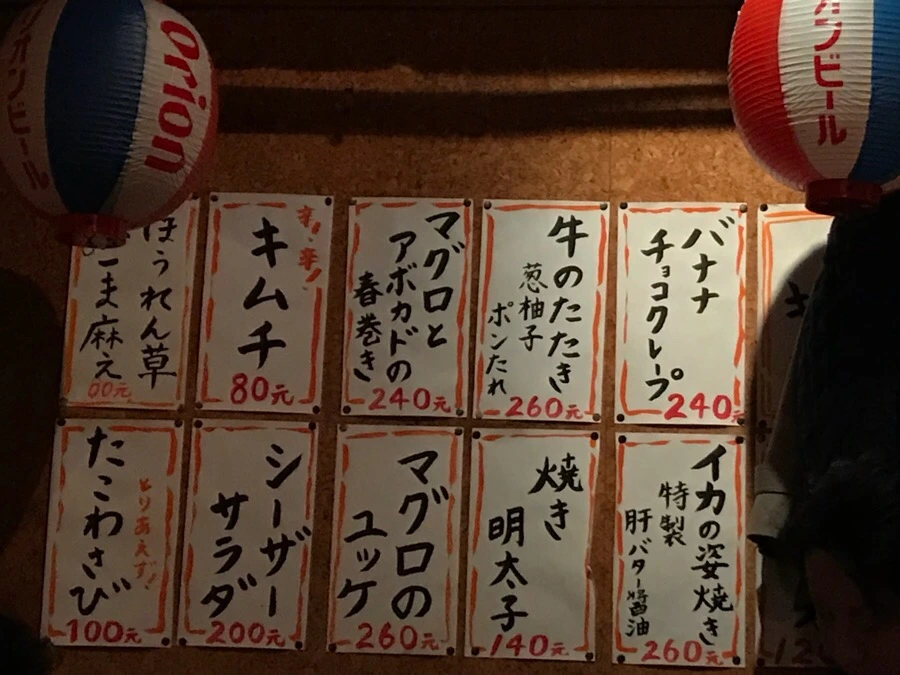 orion
オンビール
オンビール
ほうれん草
ごま麻え
00元
辛!辛!
キムチ
80元
マグロと
アボカドの
春巻き
240元
牛のたたき
葱柚子
ポンたれ
260元
バナナ
チョコクレープ
240元
とりあえず!
たこわさび
100元
シーザー
サラダ
200元
マグロの
ユッケ
260元
焼き
明太子
140元
イカの姿焼き
特製
肝バター醤油
260元